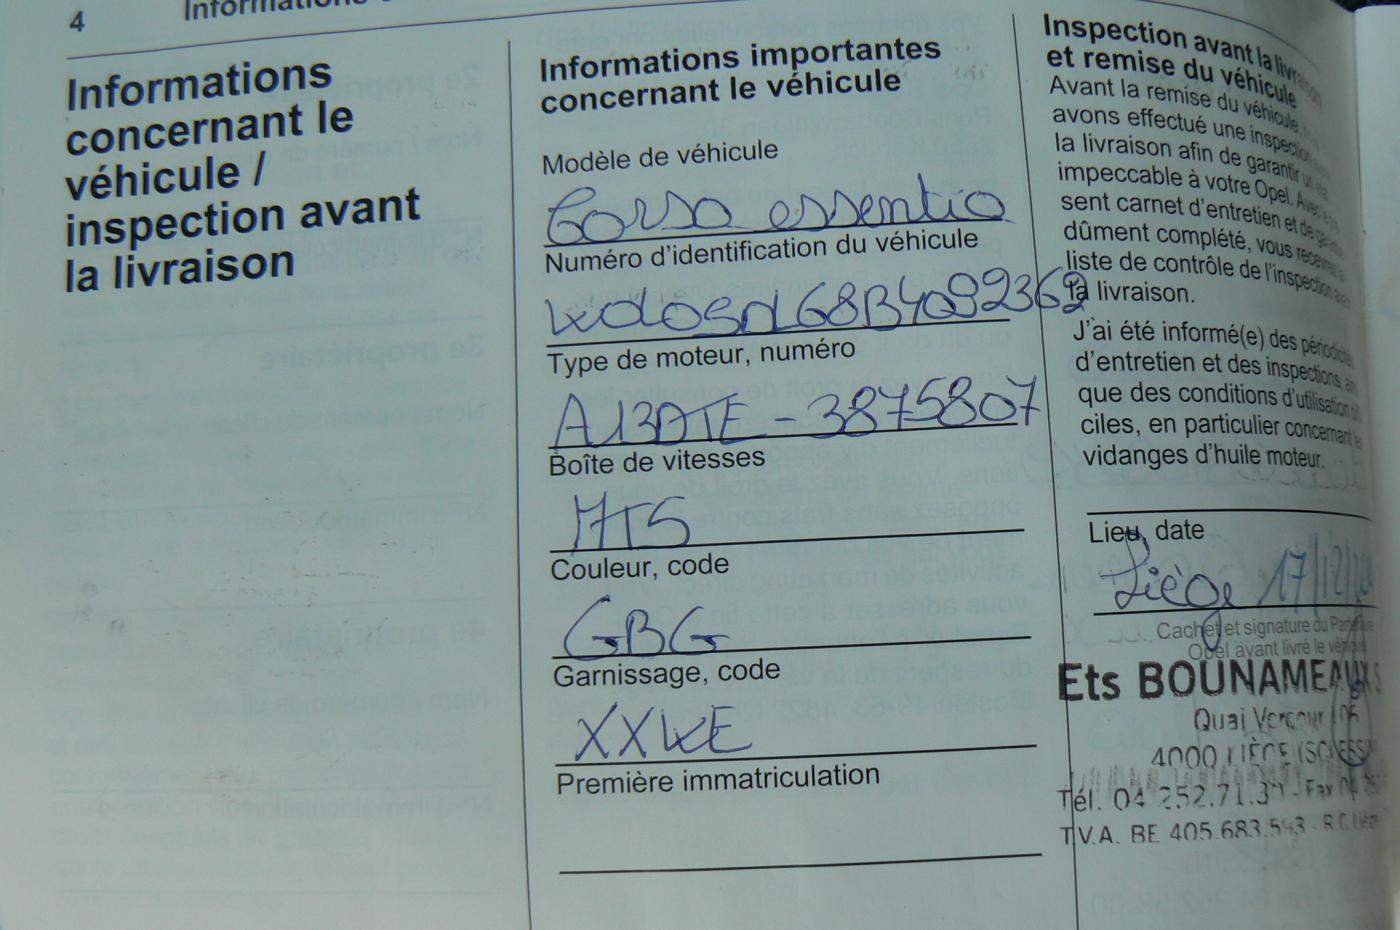 4
Informations
concernant le
véhicule /
inspection avant
la livraison
Informations importantes
concernant le véhicule
Modèle de véhicule
Corsa essentia
Numéro d'identification du véhicule
W0L0SDL68B4092362
Type de moteur, numéro
A13DTE - 3875807
Boîte de vitesses
MT5
Couleur, code
GBG
Garnissage, code
XXWE
Première immatriculation
Inspection avant la livraison
et remise du véhicule
Avant la remise du véhicule,
avons effectué une inspection
la livraison afin de garantir un
impeccable à votre Opel. Avec
sent carnet d'entretien et de
dûment complété, vous recevrez
liste de contrôle de l'inspection
la livraison.
J'ai été informé(e) des
d'entretien et des inspections,
que des conditions d'utilisation
ciles, en particulier concernant
vidanges d'huile moteur.
Lieu, date
Liège 17/12/
Cachet et signature du
Opel avant livré le
Ets BOUNAMEAUX
Quai
4000 LIÈGE
Tél. 04 252.71.
T.V.A. BE 405.683.543